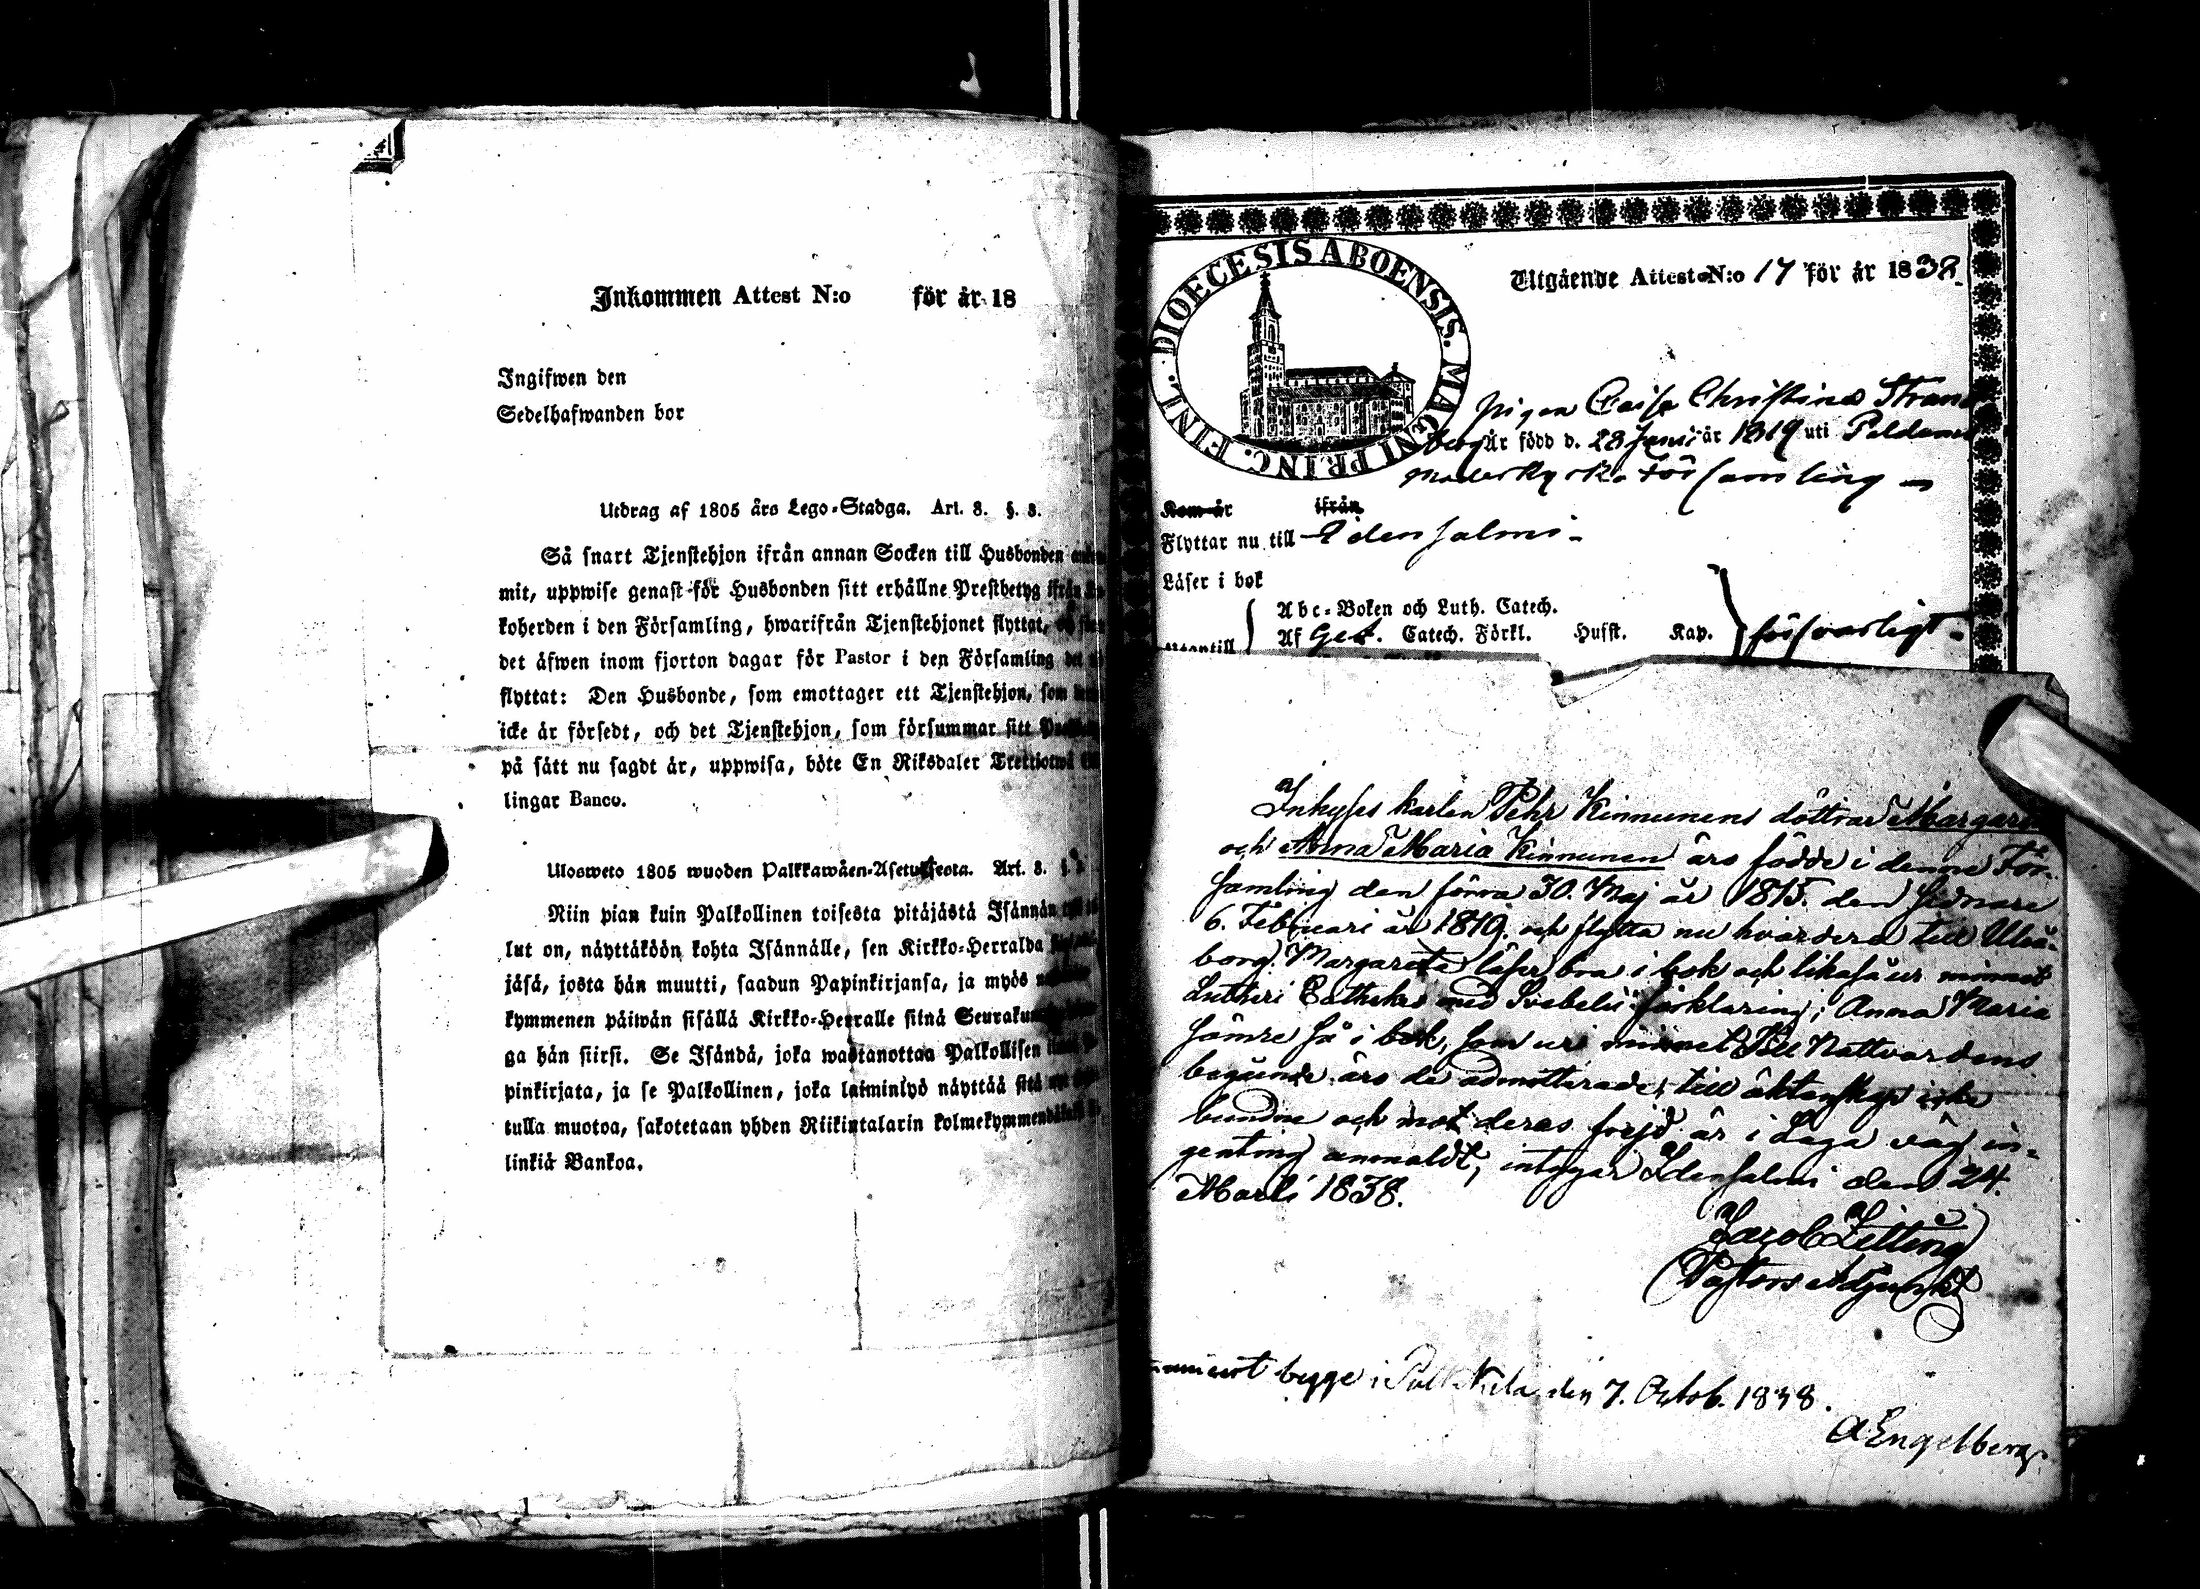 Inkommen Attest N:o för år 18
Ingifwen den
Sedelhafwanden bor
Utdrag af 1805 års Lego-Stadga. Art. 8. §. 8.
Så snart Tjenstehjon ifrån annan Socken till Husbonden
mit, uppwise genast för Husbonden sitt erhållne Prestbetyg ifrån
koherden i den Församling, hwarifrån Tjenstehjonet flyttat,
det äfwen inom fjorton dagar för Pastor i den Församling det
flyttat: Den Husbonde, som emottager ett Tjenstehjon, som
icke är försedt, och det Tjenstehjon, som försummar sitt
på sätt nu sagdt är, uppwisa, böte En Riksdaler Trettiotwå
lingar Banco.
Ulosweto 1805 wuoden Palkkawäen-Asetuksesta. Art. 8. §.
Niin pian kuin Palkollinen toisesta pitäjästä Isännän
lut on, näyttäköön kohta Isännälle, sen Kirkko-Herralda
jäsä, josta hän muutti, saadun Papinkirjansa, ja myös
kymmenen päiwän sisällä Kirkko-Herralle siinä
ga hän siirsi. Se Isändä, joka wastanottaa Palkollisen
pinkirjata, ja se Palkollinen, joka laiminlyö näyttää sitä
tulla muotoa, sakotetaan yhden Riikintalarin
linkiä Bankoa.
DIOECESIS ABOENSIS. MAGNI PRINC. FINL.
Utgående Attest N:o 17 för år 1838.
pigan Caisa Christina Strand
berg är född d. 28 Juni år 1819 uti Paldamo
moderkyrko församling
Kom år ifrån
Flyttar nu till Idensalmi
Läser i bok
Abc-Boken och Luth. Catech.
Af Geb. Catech. Förkl. Husst. Kap. försvarligt
Utantill
Inhyses karlen Pehr Kinnunens döttrar
och Anna Maria Kinnunen äro födde i denna För-
samling den förra 30. Maj år 1815. den sednare
6. Februari år 1819. och flytta nu hvardera till Uleå-
borg. Margareta läser bra i bok och likaså ur minnet
Lutheri Cathekes med Svebelii förklaring; Anna Maria
sämre så i bok, som ur minnet. Till Nattvardens
begående äro de admitterade; till äktenskap icke
bundne och mot deras frejd är i Laga väg in-
genting anmäldt, intygar Idensalmi den 24.
Martii 1838.
Jacob Zitting
Pastors Adjunkt
begge i den 7. Octob. 1838.
A Engelberg